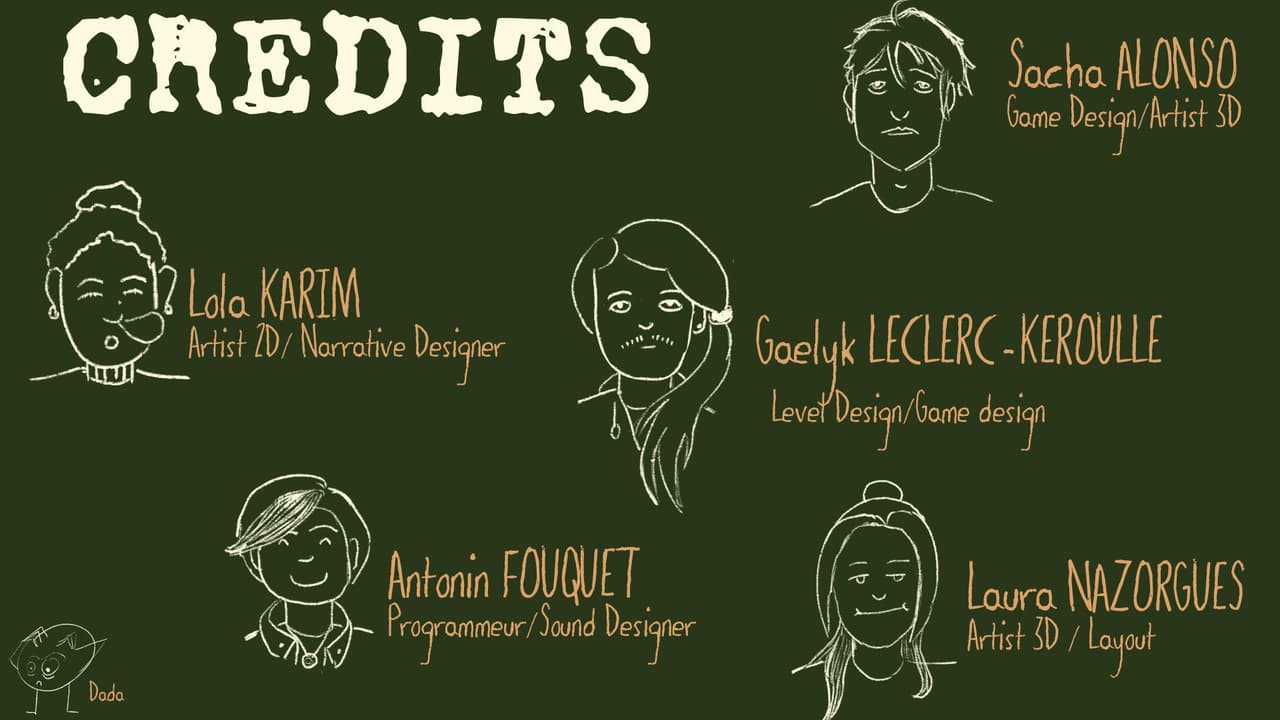 CREDITS
Sacha ALONSO
Game Design/Artist 3D
Lola KARIM
Artist 2D/ Narrative Designer
Gaelyk LECLERC-KEROULLE
Level Design/Game design
Antonin FOUQUET
Programmeur/Sound Designer
Laura NAZORGUES
Artist 3D / Layout
Dada